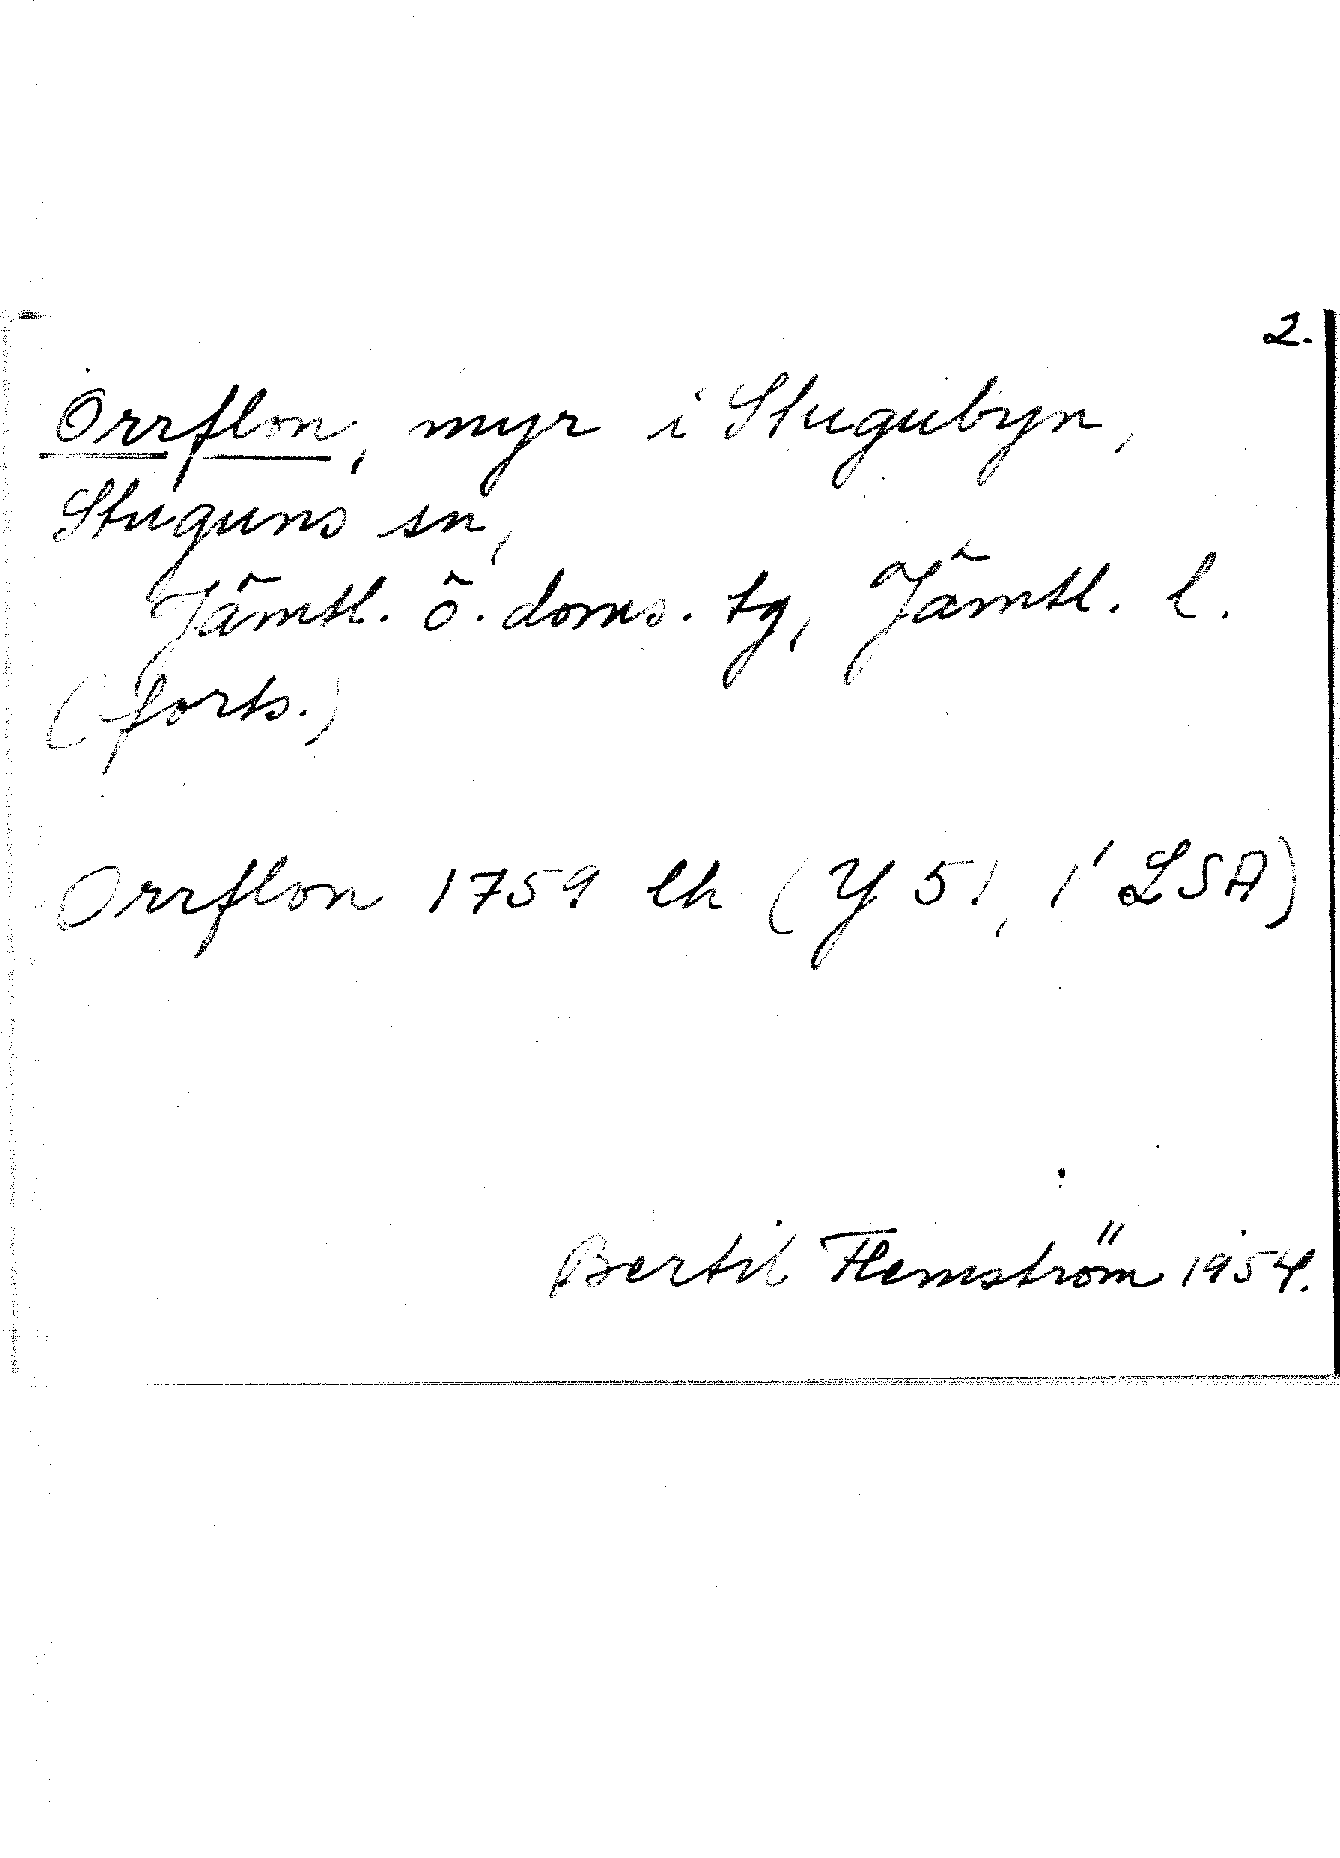 2.
Orrflon, myr i Stugubyn,
Stuguns sn,
Jämtl. ö. doms. tg, Jämtl. l.
(forts.)
Orrflon 1759 lh (Y 51, 1' LSA)
Bertil Flemström 1954.